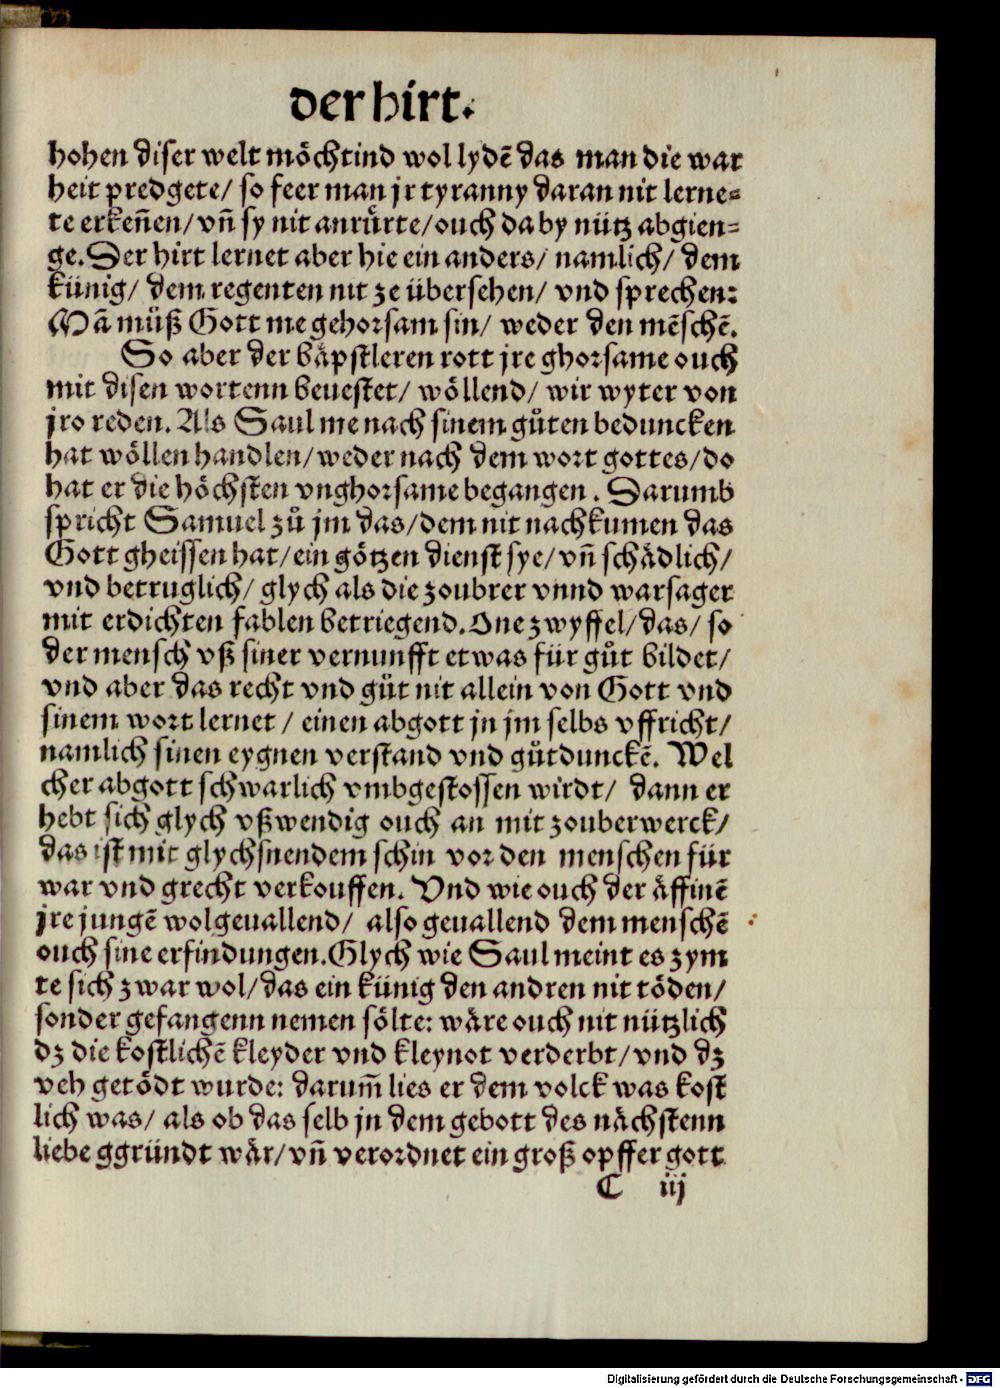 der hirt.
hohen diser welt möchtind wol lydē das man die war
heit predgete/ so feer man jr tyranny daran nit lerne⸗
te erkeñen/ vñ sy nit anrůrte/ ouch da by nütz abgien⸗
ge. Der hirt lernet aber hie ein anders/ namlich/ dem
künig/ dem regenten nit ze übersehen/ vnd sprechen:
Mā müß Gott me gehorsam sin/ weder den mēschē.
So aber der bäpstleren rott jre ghorsame ouch
mit disen wortenn beuestet/ wöllend/ wir wyter von
jro reden. Als Saul me nach sinem gůten beduncken
hat wöllen handlen/ weder nach dem wort gottes/ do
hat er die höchsten vnghorsame begangen. Darumb
spricht Samuel zů jm das/ dem nit nachkumen das
Gott gheissen hat/ ein götzen dienst sye/ vñ schädlich/
vnd betruglich/ glych als die zoubrer vnnd warsager
mit erdichten fablen betriegend. One zwyffel/ das/ so
der mensch vß siner vernunfft etwas für gůt bildet/
vnd aber das recht vnd gůt nit allein von Gott vnd
sinem wort lernet/ einen abgott jn jm selbs vffricht/
namlich sinen eygnen verstand vnd gůtdunckē. Wel
cher abgott schwarlich vmbgestossen wirdt/ dann er
hebt sich glych vßwendig ouch an mit zouberwerck/
das ist mit glychsnendem schin vor den menschen für
war vnd grecht verkouffen. Vnd wie ouch der äffinē
jre jungē wolgeuallend/ also geuallend dem menschē
ouch sine erfindungen. Glych wie Saul meint es zym
te sich zwar wol/ das ein künig den andren nit töden/
sonder gefangenn nemen sölte: wäre ouch nit nützlich
dz die kostlichē kleyder vnd kleynot verderbt/ vnd dz
veh getödt wurde: darum̄ lies er dem volck was kost
lich was/ als ob das selb jn dem gebott des nächstenn
liebe ggründt wär/ vñ verordnet ein groß opffer gott
C iij
Digitalisierung gefördert durch die Deutsche Forschungsgemeinschaft - DFG